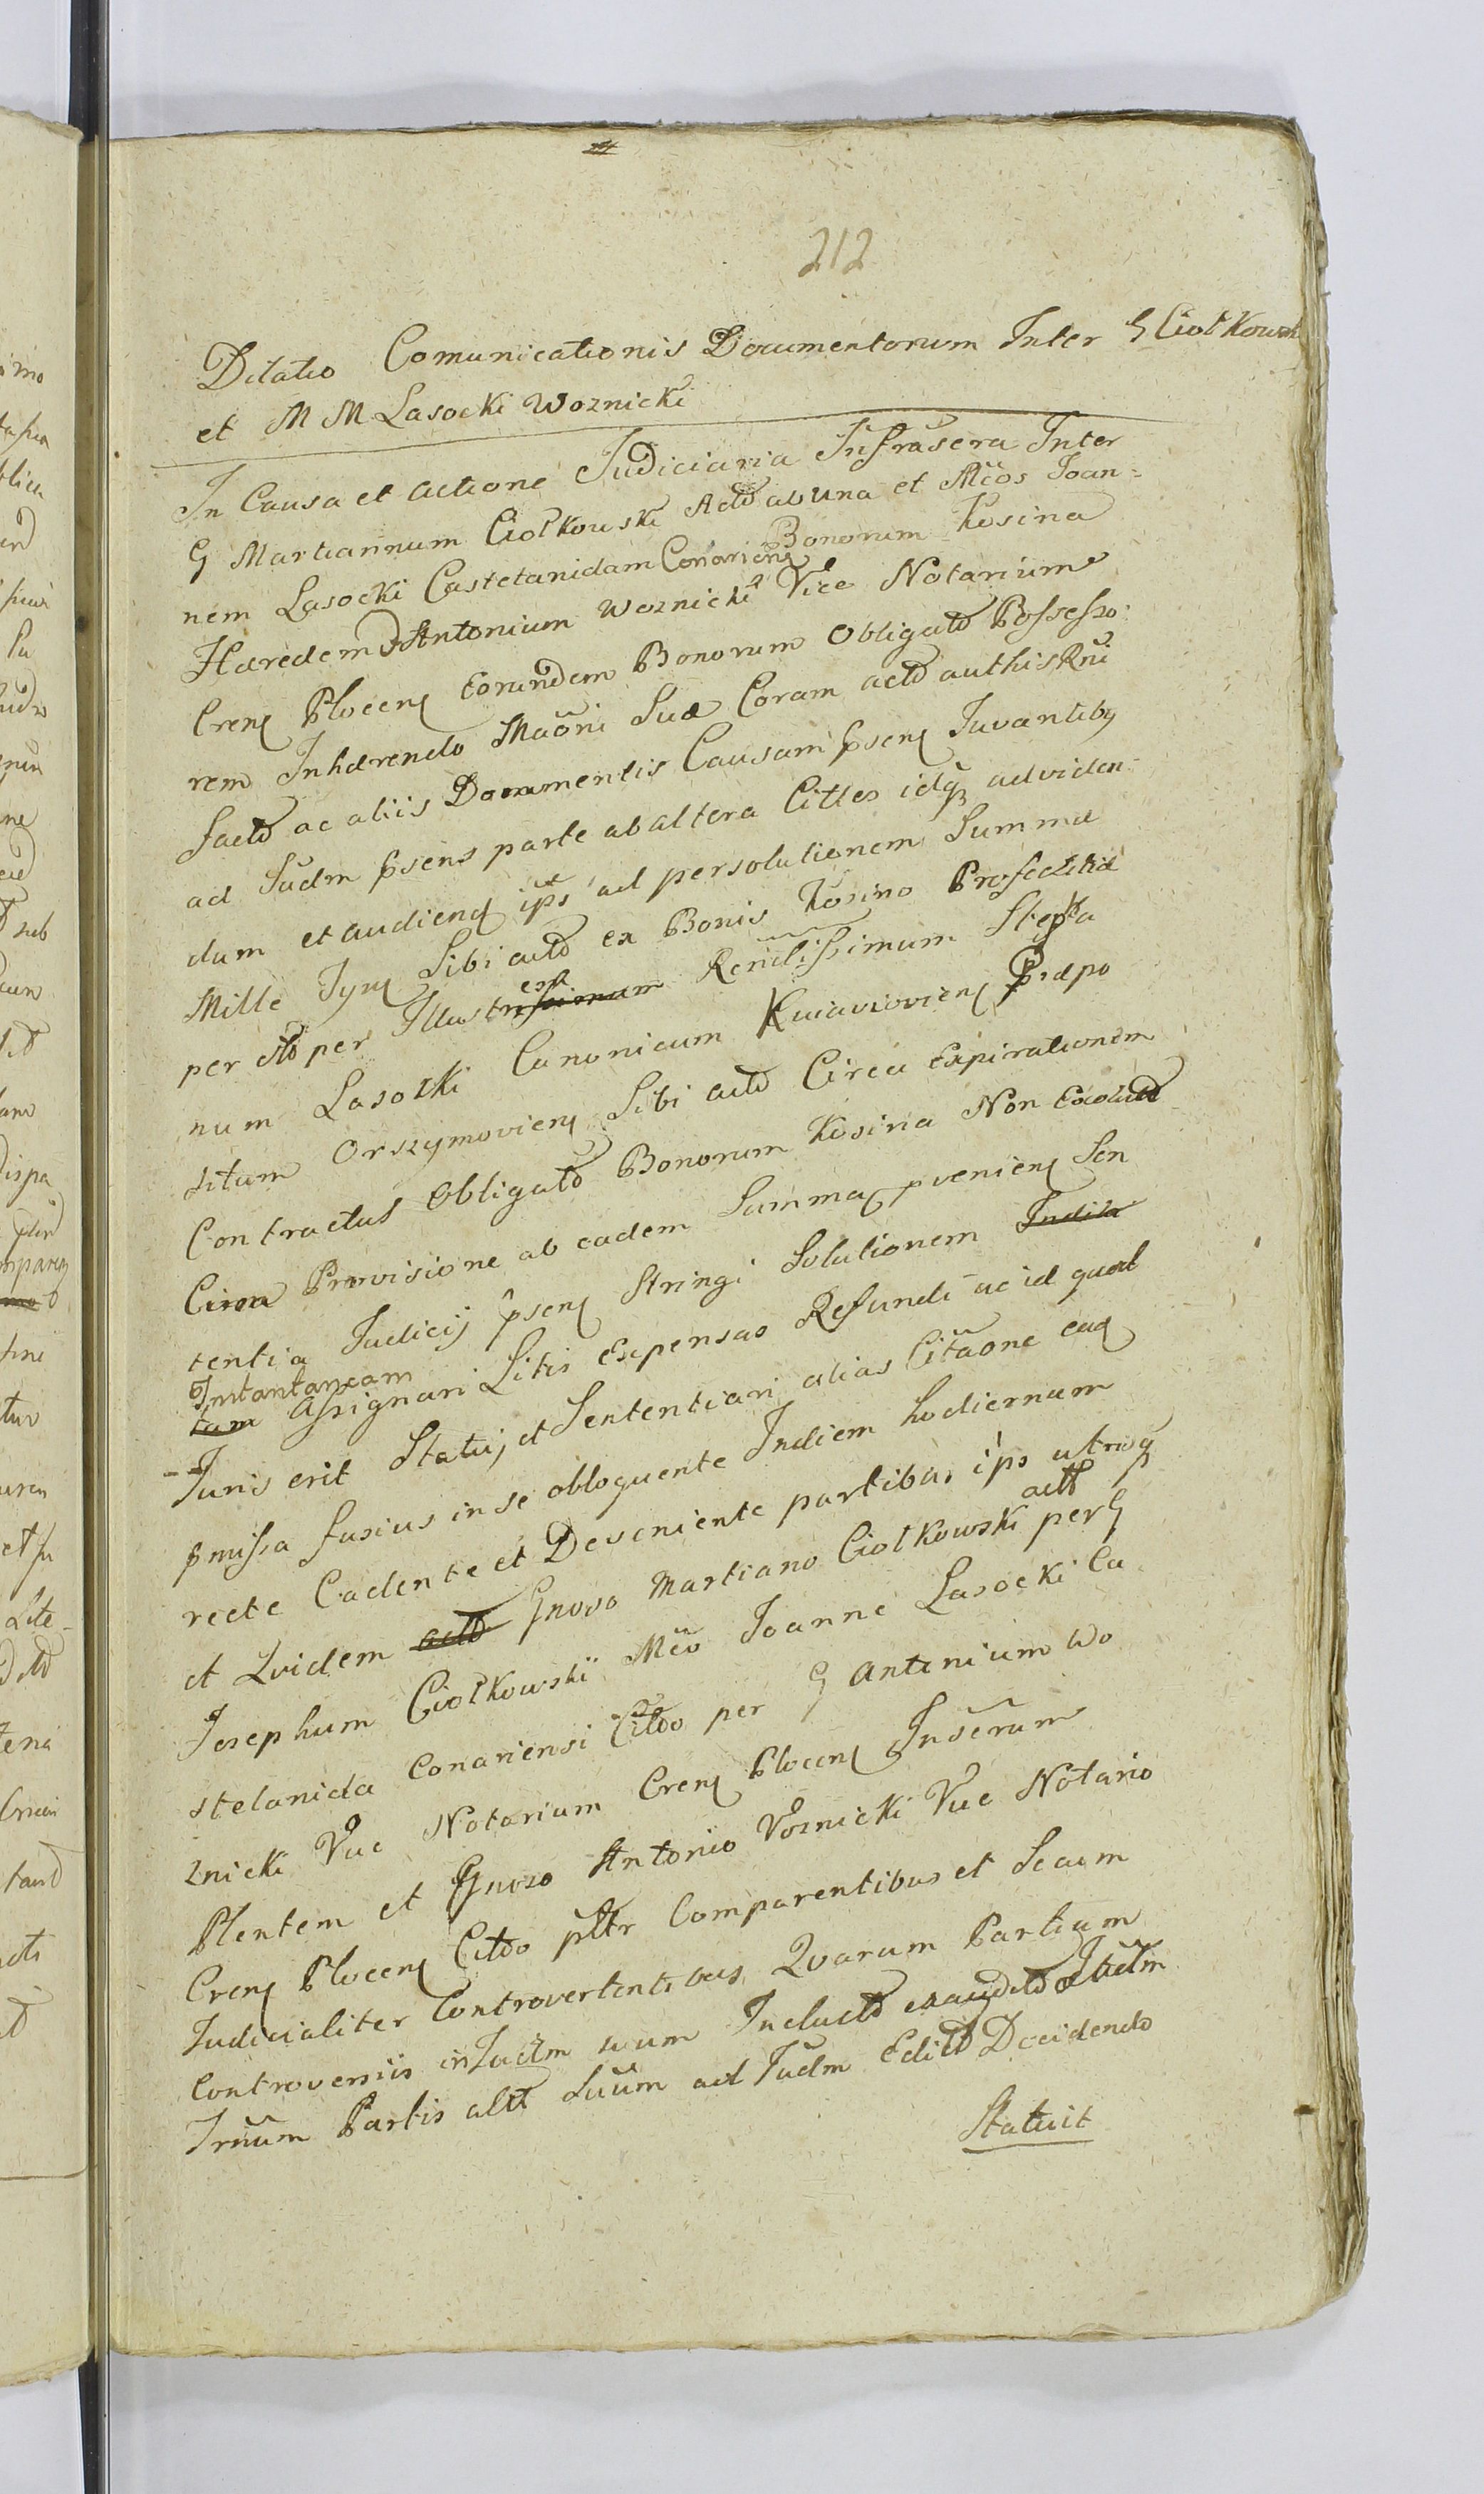 212
Dilatio Comunicationis Documentorum Inter G Ciołkowski
et M M Lasocki Woznicki
In Causa et actione Judiciaria Infrascra Inter
G Martiannum Ciołkowski Actō ab una et Mcos Joan-
nem Lasocki Castelanidam Conariens Bonorum Kosina
Hæredem Antonium Woznicki Vice Notarium
Crens Plocens Eorundem Bonorum Obligatō Possesso-
rem Inhærendo Maōni Suæ Coram actō authis Rni
factō ac aliis Documentis Causam pſens Juvantibq
ad Judm pſens parte ab altera Cittos idq ad viden-
dum et audiend ips ad persolutionem Summæ
Mille Tyns Sibi actō ex Bonis Kosino Profectitiæ
per Ō per Illustrissimum Rendissimum Stepha
num Lasocki Canonicum Kuiavioviens Præpo
situm Orszymoviens Sibi actō Circa Expirationem
Contractus Obligatō Bonorum Kosina Non Exolutō
Cum Provisione ab eadem Summa pveniens Sen
tentia Judicij pſens Stringi Solutionem Indila
Instantaneam
tam Assignari Litis Expensas Refundi ac id quod
Juris erit Statuj et Sententiari alias Citaōne eaq
pmissa fusius in se obloquente Indiem hodiernum
recte Cadente et Deveniente partibus ips utrisq
et Quidem actō Gnoso Martiano Ciołkowski actō per G
Josephum Ciołkowski Mco Joanne Lasocki Ca
stelanida Conariensi Citto per G Antonium Wo
znicki Vice Notarium Crens Plocens Inserum
Plentem et Gnoso Antonio Voznicki Vice Notario
Crens Plocens Citto pltr Comparentibus et Secum
Judicialiter Controvertentibus Quarum Partium
Controversiis in Judm suum Inductō exauditō Judm
Trnum Partis altt Suum ad Judm Editō Decidendo
Statuit